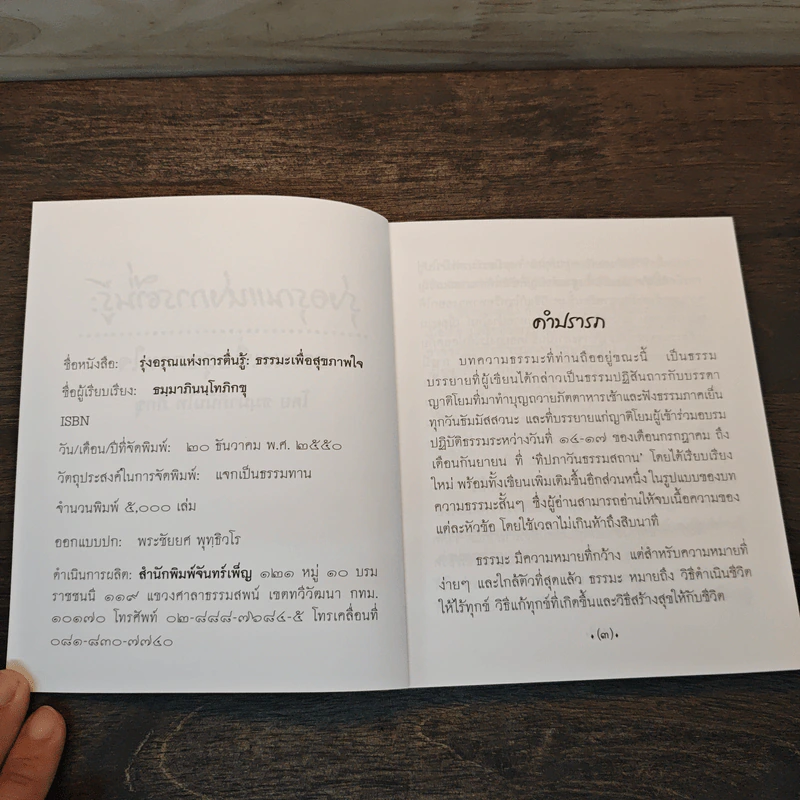 ชื่อหนังสือ: รุ่งอรุณแห่งการตื่นรู้: ธรรมะเพื่อสุขภาพใจ
ชื่อผู้เรียบเรียง: ธมฺมาภินนฺโทภิกขุ
ISBN
วัน/เดือน/ปีที่จัดพิมพ์: ๒๐ ธันวาคม พ.ศ. ๒๕๕๐
วัตถุประสงค์ในการจัดพิมพ์: แจกเป็นธรรมทาน
จำนวนพิมพ์ ๕,๐๐๐ เล่ม
ออกแบบปก: พระชัยยศ พุทฺธิวโร
ดำเนินการผลิต: สำนักพิมพ์จันทร์เพ็ญ ๑๒๑ หมู่ ๑๐ บรม
ราชชนนี ๑๑๙ แขวงศาลาธรรมสพน์ เขตทวีวัฒนา กทม.
๑๐๑๗๐ โทรศัพท์ ๐๒-๘๘๘-๗๖๘๔-๕ โทรเคลื่อนที่
๐๘๑-๘๓๐-๗๗๔๐
คำปรารภ
บทความธรรมะที่ท่านถืออยู่ขณะนี้ เป็นธรรม
บรรยายที่ผู้เขียนได้กล่าวเป็นธรรมปฏิสันถารกับบรรดา
ญาติโยมที่มาทำบุญถวายภัตตาหารเช้าและฟังธรรมภาคเย็น
ทุกวันธัมมัสสวนะ และที่บรรยายแก่ญาติโยมผู้เข้าร่วมอบรม
ปฏิบัติธรรมระหว่างวันที่ ๑๔-๑๗ ของเดือนกรกฎาคม ถึง
เดือนกันยายน ที่ 'ทีปภาวันธรรมสถาน' โดยได้เรียบเรียง
ใหม่ พร้อมทั้งเขียนเพิ่มเติมขึ้นอีกส่วนหนึ่ง ในรูปแบบของบท
ความธรรมะสั้นๆ ซึ่งผู้อ่านสามารถอ่านให้จบเนื้อความของ
แต่ละหัวข้อ โดยใช้เวลาไม่เกินห้าถึงสิบนาที
ธรรมะ มีความหมายที่กว้าง แต่สำหรับความหมายที่
ง่ายๆ และใกล้ตัวที่สุดแล้ว ธรรมะ หมายถึง วิธีดำเนินชีวิต
ให้ไร้ทุกข์ วิธีแก้ทุกข์ที่เกิดขึ้นและวิธีสร้างสุขให้กับชีวิต
•(๓)•